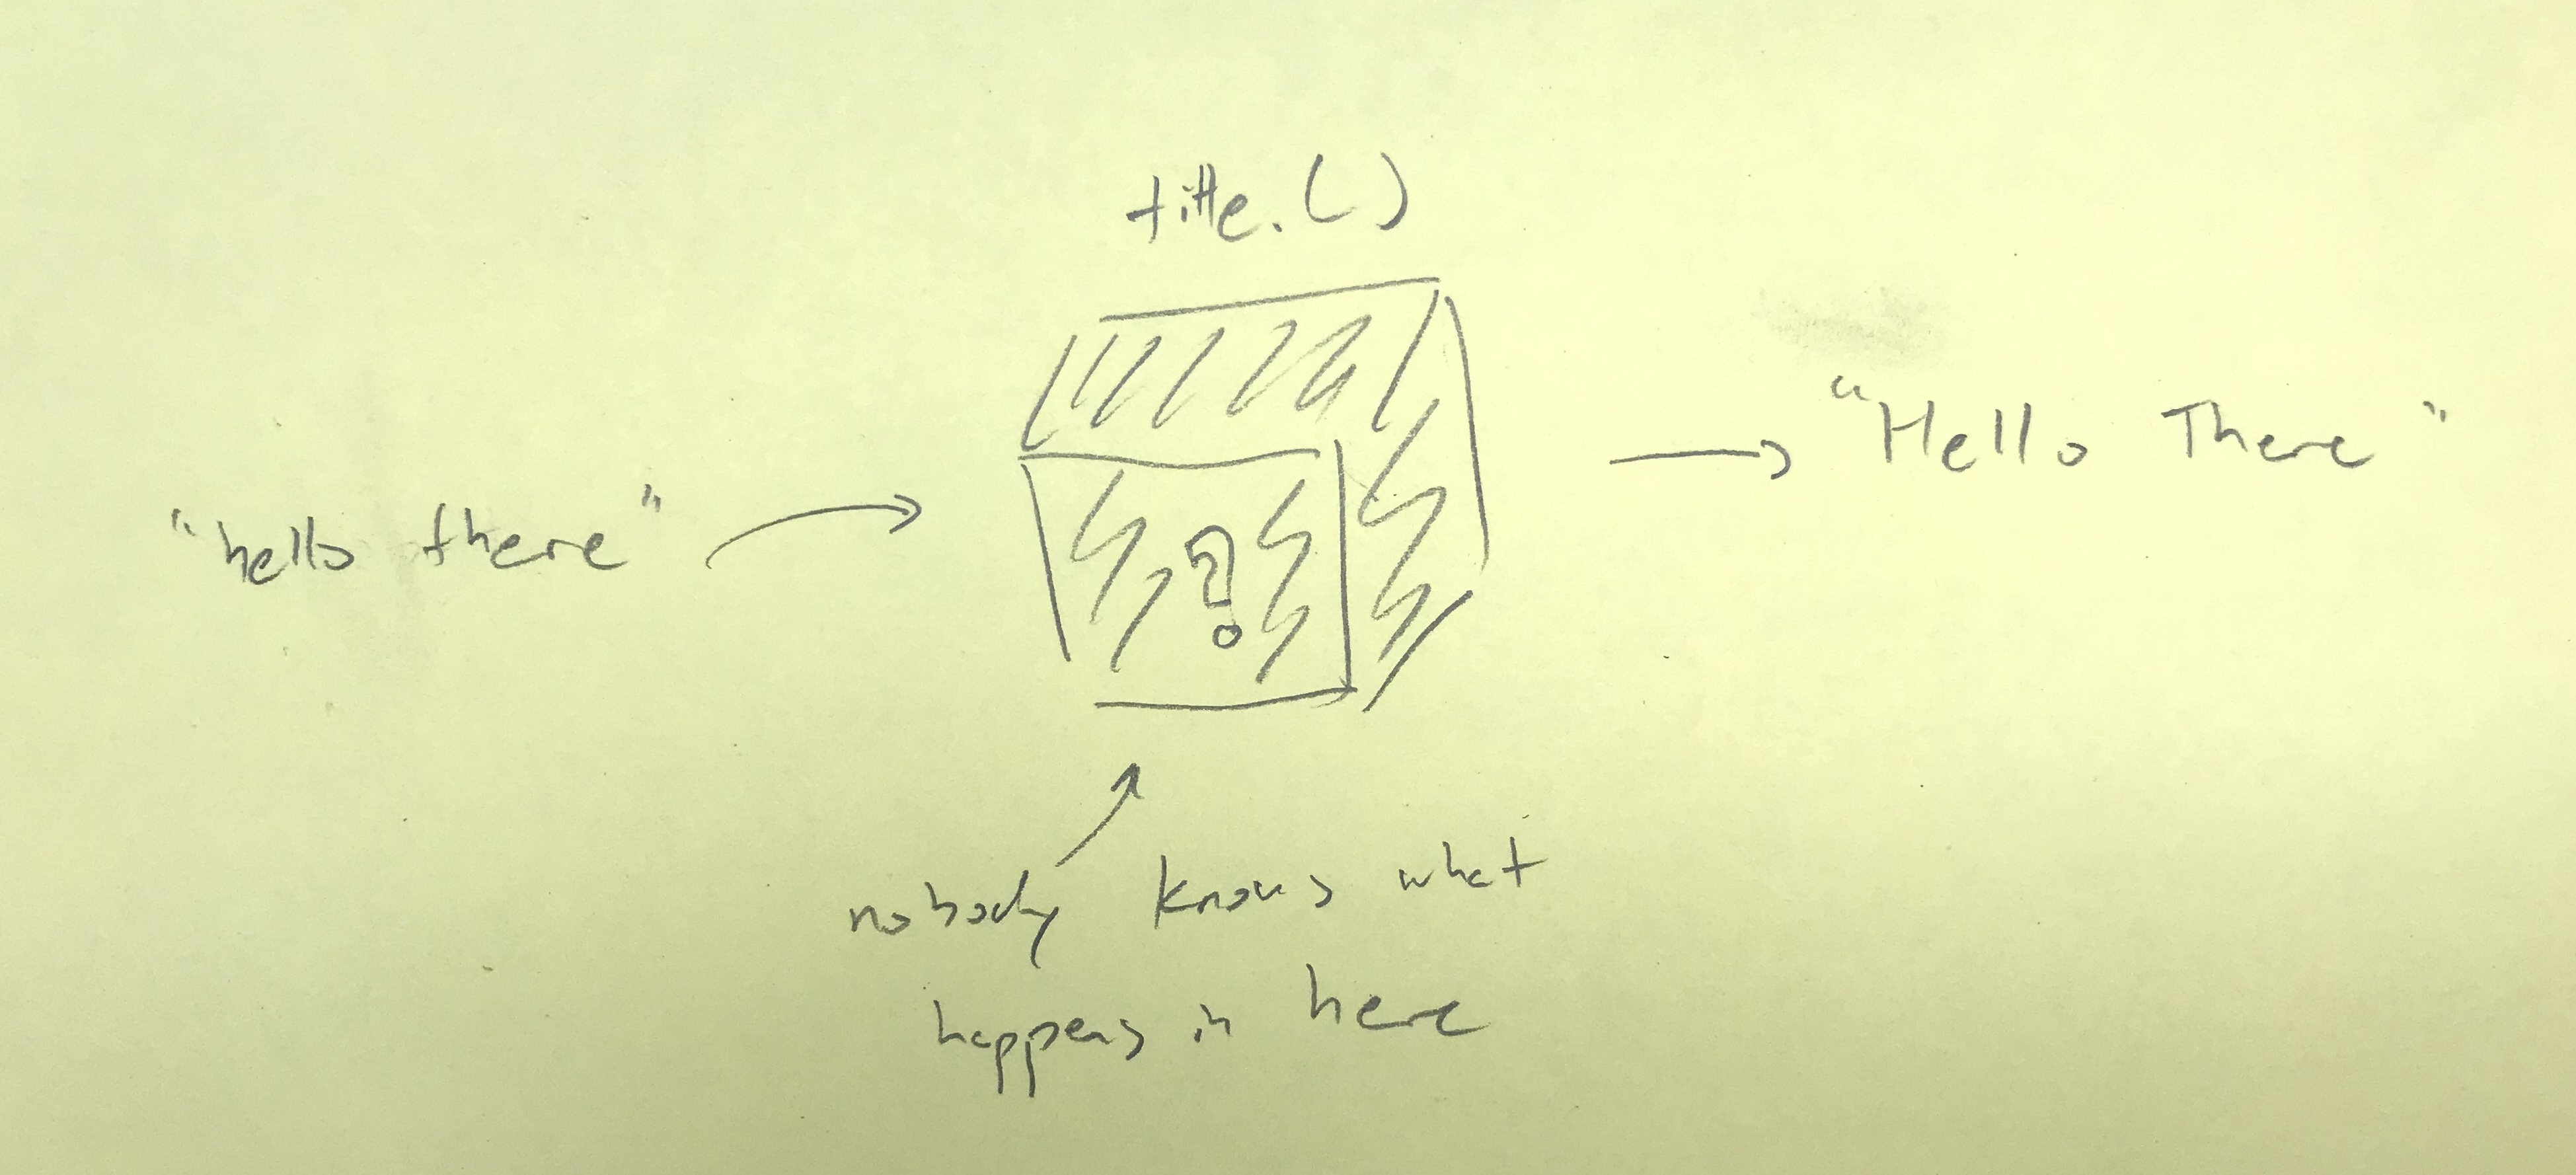 title.()
"hello there"
"Hello There"
?
nobody knows what
happens in here